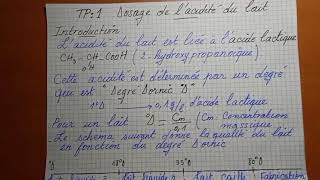 TP:1 Dosage de l'acidité du lait
Introduction
L'acidité du lait est liée à l'acide lactique
CH3 - CH - COOH (2-hydroxypropanoïque)
OH
Cette acidité est déterminée par un degré
qui est "Degré Dornic "D"
1°D → 0,1g/l d'acide lactique
Pour un lait °D = Cm/0,1 (Cm: Concentration
massique
- Le schema suivant donne la qualité du lait
en fonction du degré Dornic
18°D 35°D 80°D
lait liquide lait caillé Fabrication